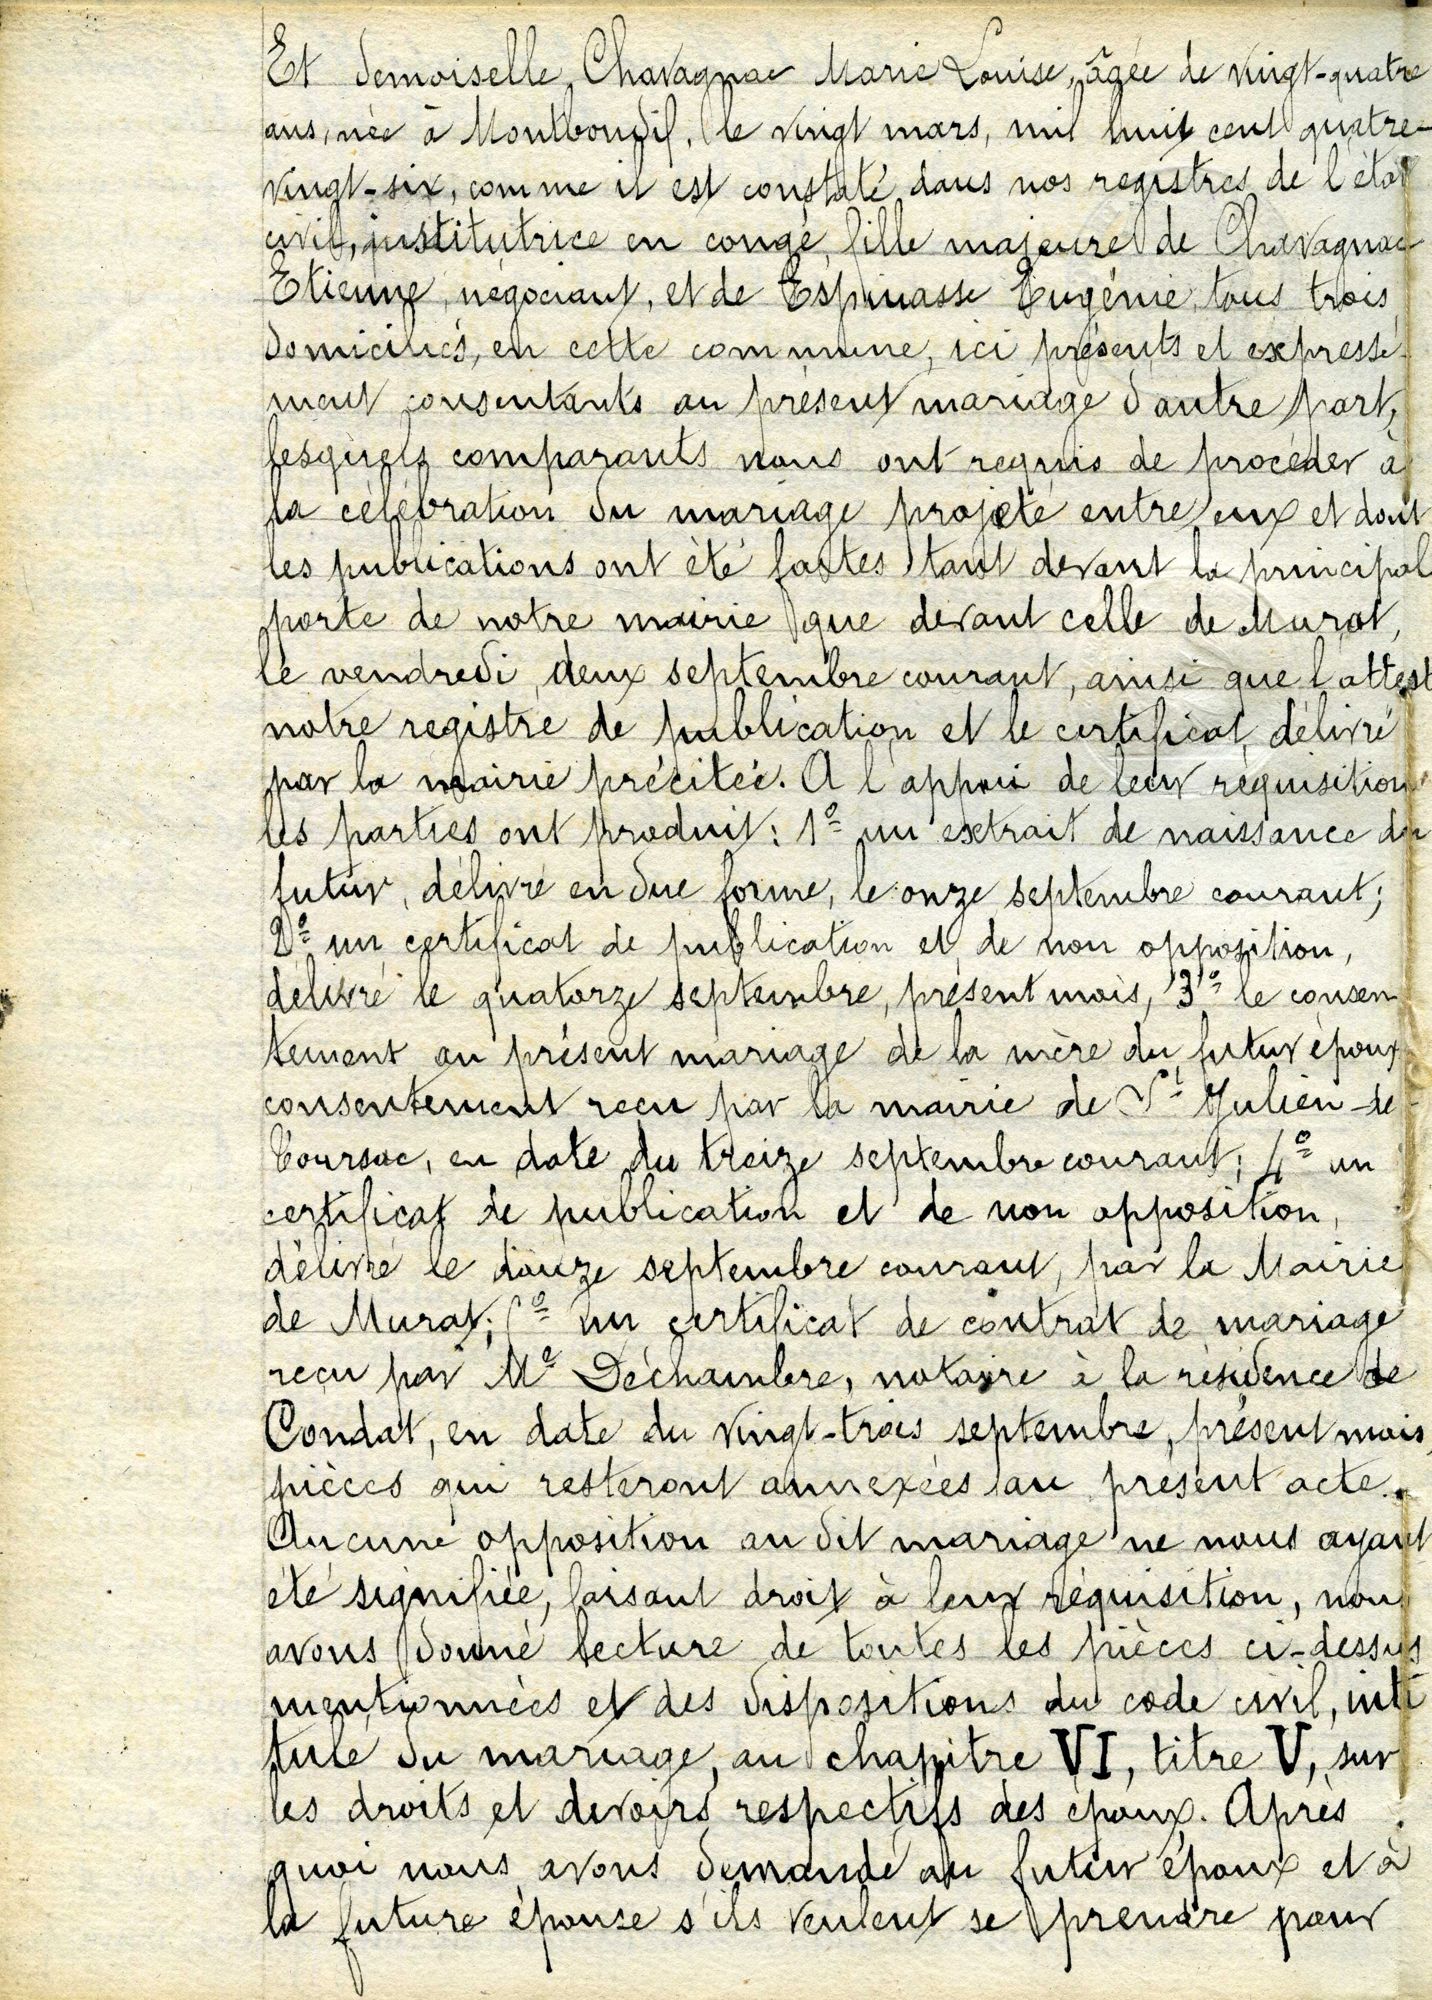 Et demoiselle Chavagnac Marie Louise, âgée de vingt-quatre
ans, née à Montboudif, le vingt mars, mil huit cent quatre-
vingt-six, comme il est constaté dans nos registres de l'état
civil, institutrice en congé, fille majeure de Chavagnac
Etienne, négociant, et de Espinasse Eugénie, tous trois
domiciliés, en cette commune, ici présents et expressé-
ment consentants au présent mariage d'autre part,
lesquels comparants nous ont requis de procéder à
la célébration du mariage projeté entre eux et dont
les publications ont été faites tant devant la principal
porte de notre mairie que devant celle de Murat,
le vendredi, deux septembre courant, ainsi que l'attest
notre registre de publication et le certificat délivré
par la mairie précitée. A l'appui de leur réquisition
les parties ont produit: 1º un extrait de naissance du
futur, délivré en due forme, le onze septembre courant;
2º un certificat de publication et de non opposition,
délivré le quatorze septembre, présent mois, 3º le consen
tement au présent mariage de la mère du futur époux
consentement reçu par la mairie de St Julien-de-
Toursac, en date du treize septembre courant; 4º un
certificat de publication et de non opposition,
délivré le douze septembre courant, par la Mairie
de Murat; 5º un certificat de contrat de mariage
reçu par Me Déchambre, notaire à la résidence de
Condat, en date du vingt-trois septembre, présent mois,
pièces qui resteront annexées au présent acte.
Aucune opposition au dit mariage ne nous ayant
été signifiée, faisant droit à leur réquisition, nous
avons donné lecture de toutes les pièces ci-dessus
mentionnées et des dispositions du code civil, inti
tulé du mariage, au chapitre VI, titre V, sur
les droits et devoirs respectifs des époux. Après
quoi nous avons demandé au futur époux et à
la future épouse s'ils veulent se prendre pour